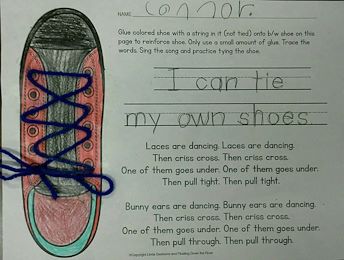 NAME Connor.
Glue colored shoe with a string in it (not tied) onto b/w shoe on this
page to reinforce shoe. Only use a small amount of glue. Trace the
words. Sing the song and practice tying the shoe.
I can tie
my own shoes.
Laces are dancing. Laces are dancing.
Then criss cross. Then criss cross.
One of them goes under. One of them goes under.
Then pull tight. Then pull tight.
Bunny ears are dancing. Bunny ears are dancing.
Then criss cross. Then criss cross.
One of them goes under. One of them goes under.
Then pull through. Then pull through.